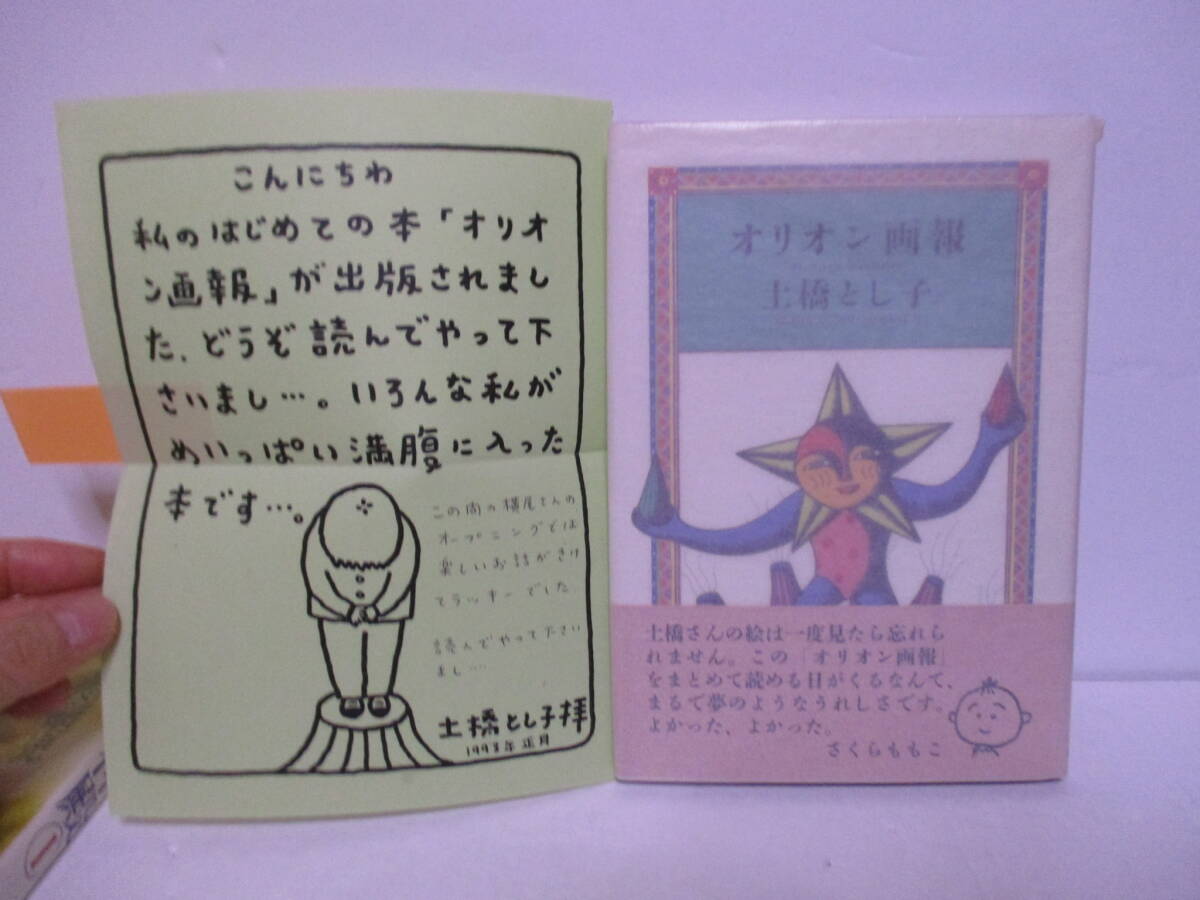 こんにちわ
私のはじめての本「オリオ
ン画報」が出版されまし
た、どうぞ読んでやって下
さいまし…。いろんな私が
めいっぱい満腹に入った
本です…。
この間の横尾さんの
オープニングでは
楽しいお話がきけ
てラッキーでした、
読んでやって下さい
まし…
土橋とし子拝
1993年正月
オリオン画報
土橋とし子
土橋さんの絵は一度見たら忘れら
れません。この「オリオン画報」
をまとめて読める日がくるなんて、
まるで夢のようなうれしさです。
よかった、よかった。
さくらももこ